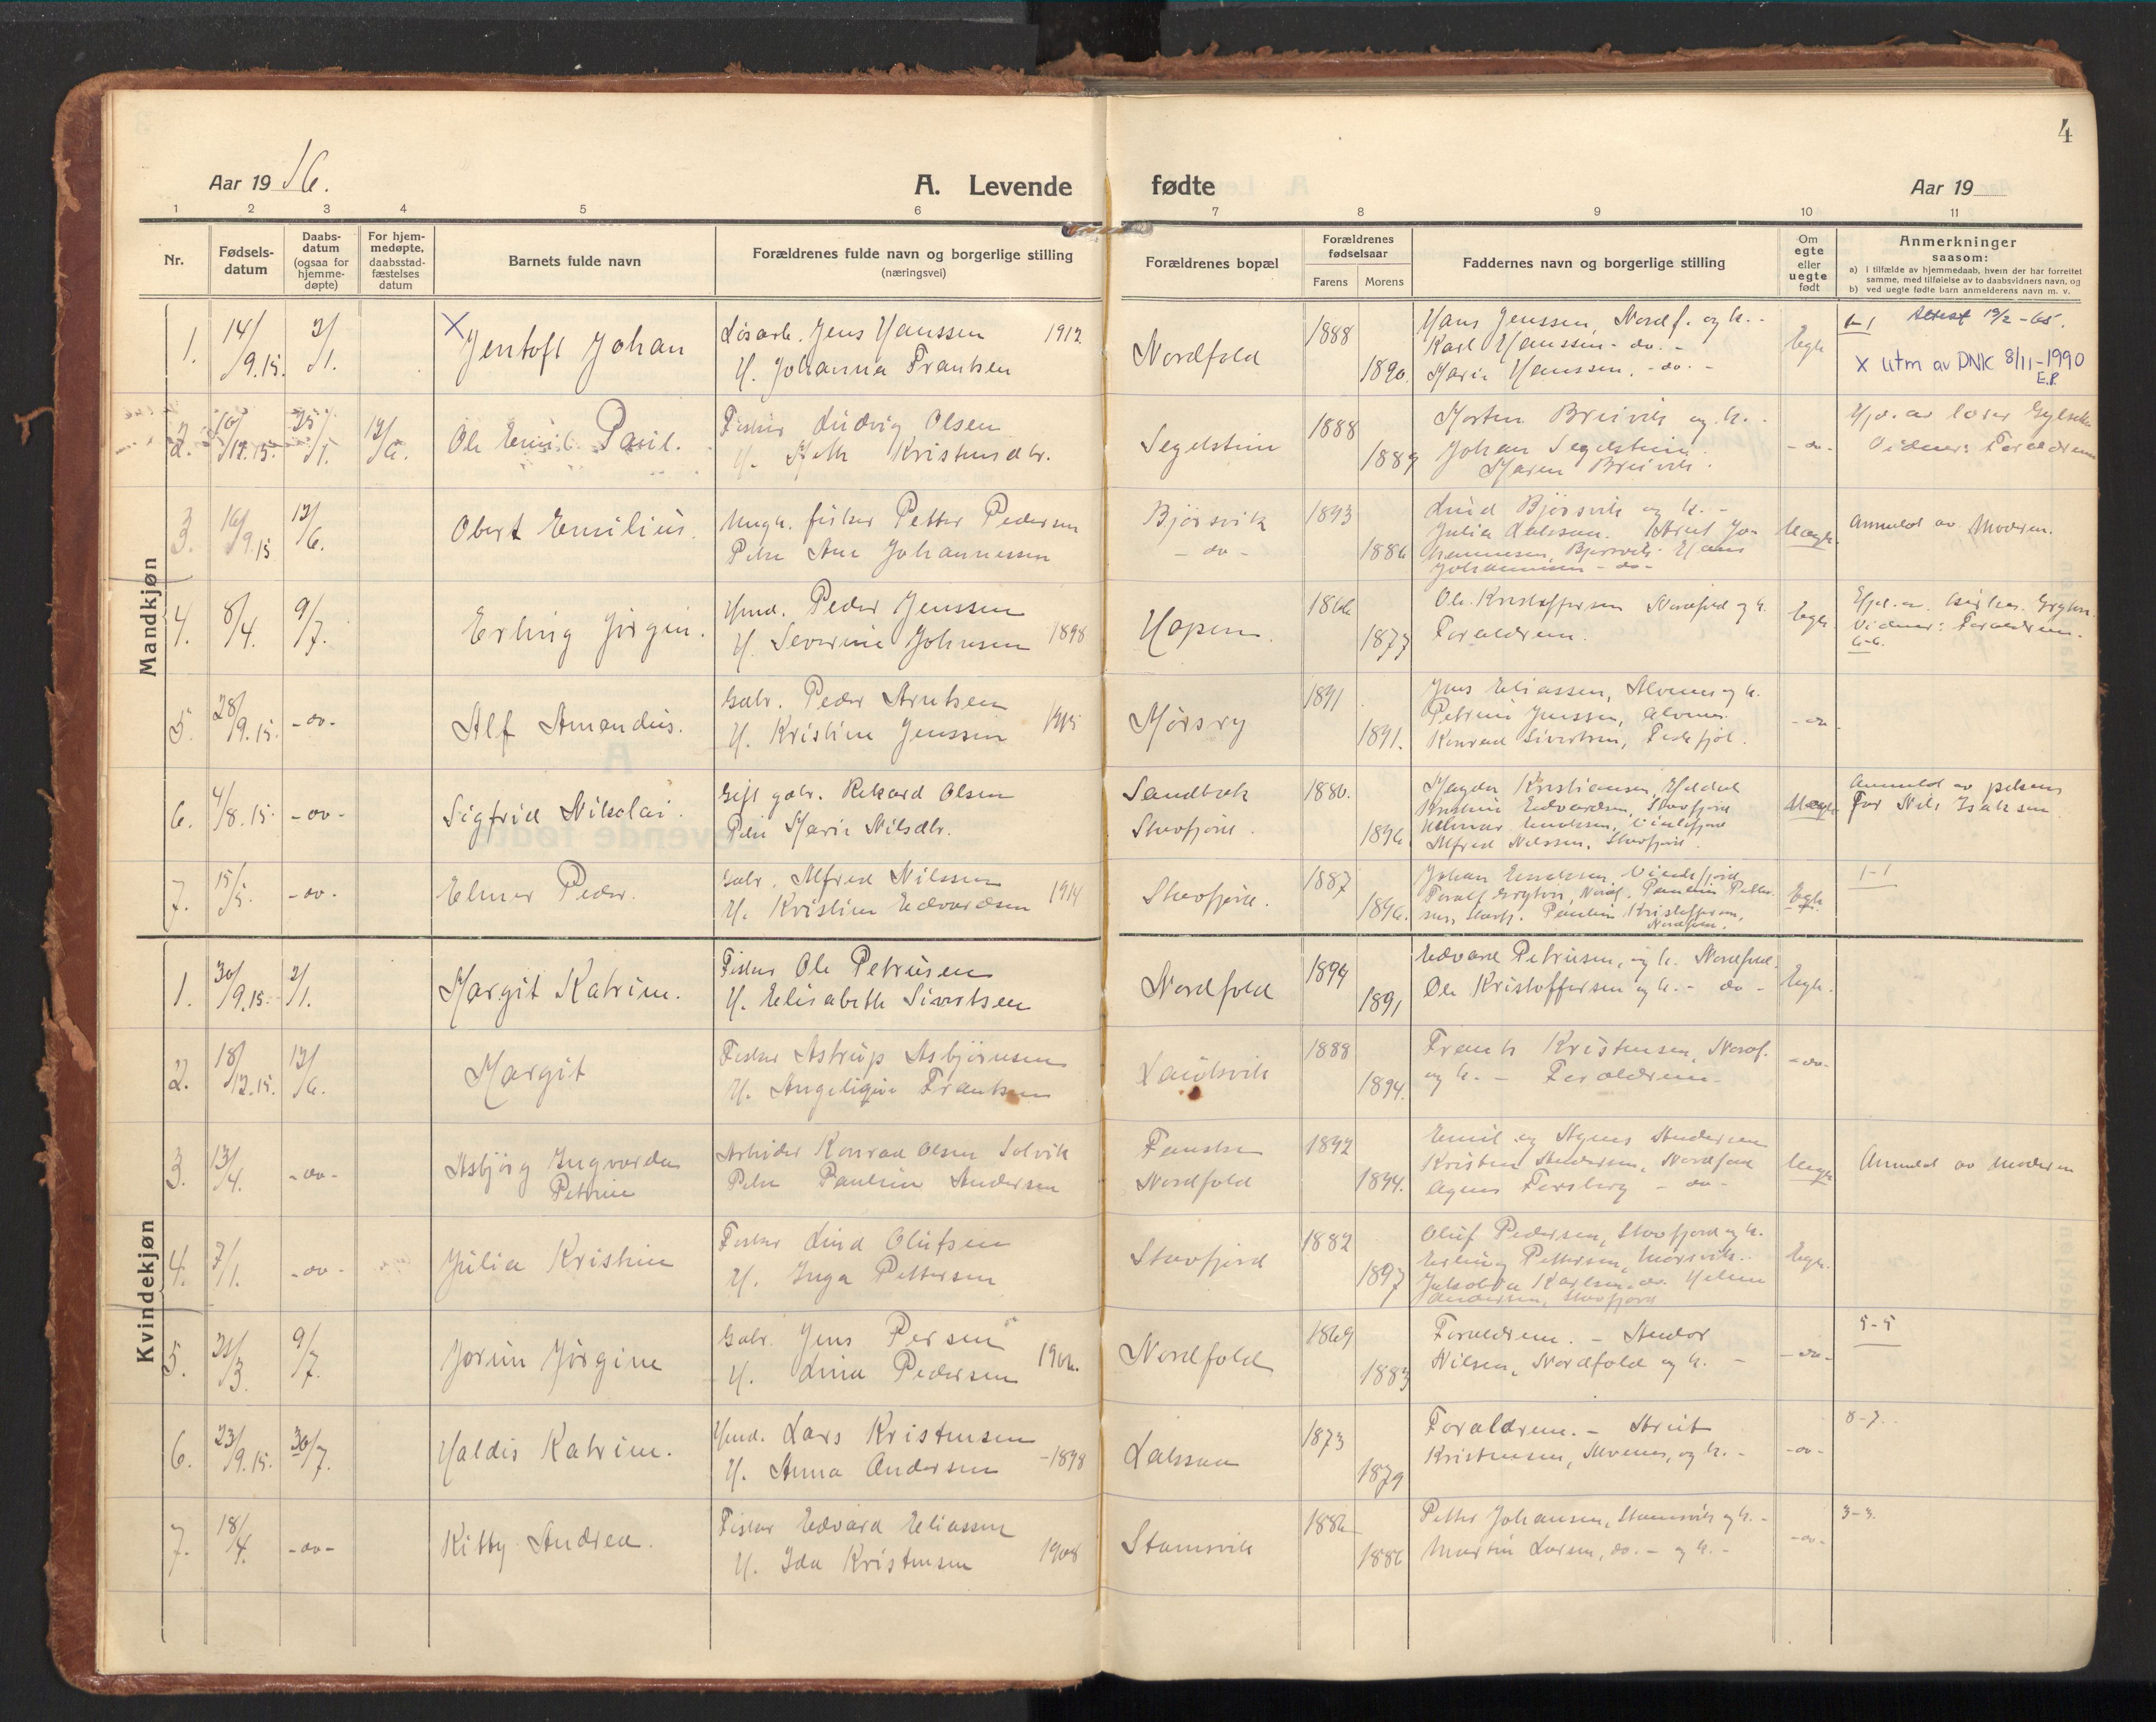 4
Aar 19 16.
A. Levende fødte
Aar 19
1 2 3 4 5 6 7 8 9 10 11
Nr.
Fødsels-
datum
Daabs-
datum
(ogsaa for
hjemme-
døpte)
For hjem-
medøpte,
daabsstad-
fæstelses
datum
Barnets fulde navn
Forældrenes fulde navn og borgerlige stilling
(næringsvei)
Forældrenes bopæl
Forældrenes
fødselsaar
Farens Morens
Faddernes navn og borgerlige stilling
Om
egte
eller
uegte
født
Anmerkninger
saasom:
a) i tilfælde av hjemmedaab, hvem der har forrettet
samme, med tilføielse av to daabsvidners navn, og
b) ved uegte fødte barn anmelderens navn m. v.
Mandkjøn
1. 14/9.15. 2/1. X Jentoft Johan
Løsarb. Jens Hanssen 1912
H. Johanna Frantsen
Nordfold 1888 1890.
Hans Jenssen, Nordf. og h. -
Karl Hanssen - do. -
Marie Hanssen. - do. -
Egte
1-1 Attest 19/2-65.
X utm av DNK 8/11-1990
E.P.
2. 10/12.15. 25/1. 12/6. Ole Emil Paul.
Fisker Ludvig Olsen
H. Kristensdtr.
Segelstein 1888 1889
Morten Breivik og h. -
Johan Segelstein
Maren Breivik.
- do -
Hjd. av lærer
Vidner: Forældrene
3. 16/9.15 12/6. Obert Emilius.
Ungk. fisker Petter Pedersen
Pike Ane Johannessen
Bjørsvik
- do -
1893 1886
Bjørsvik og h. -
Julie
Bjørsvik. Hans
Johannessen - do -
Uegte
Anmeldt av Moderen.
4. 8/4. 9/7. Erling Jørgen.
Gmd. Peder Jenssen
H. Severine Johnsen 1898
Hopen. 1866 1877
Ole Kristoffersen Nordfold og h.
Forældrene.
Egte
Vidner: Forældrene.
6-6.
5. 28/9.15. - do - Alf Amandus.
Gabr. Peder Arntsen
H. Kristine Jenssen 1915
Mørsry 1891 1891.
Jens Eliassen, Alvenes og h.
Petrine Jenssen, Alvenes.
Konrad Sivertsen,
- do -
6. 4/8.15 - do - Sigfrid Nikolai.
Gift gabr. Rikard Olsen
Pike Marie Nilsdtr.
Sandbæk
Stavfjord.
1880. 1896
Kristiansen,
Edvardsen, Stavfjord
Alfred Nilssen, Stavfjord.
Uegte
Anmeldt av pikens
Far Nils Isaksen
7. 15/5. - do - Elmer Peder.
Gabr. Alfred Nilssen
H. Kristine Edvardsen 1914
Stavfjord. 1887 1896.
Johan
Nordf. Pauline Petter-
sen, Stavfj. Pauline Kristoffersen,
Nordfold.
Egte
1-1
Kvindekjøn
1. 30/9.15. 2/1. Margit Katrine.
Fisker Ole Petrusen
H. Elisabeth Sivertsen
Nordfold 1894 1891
Edvard Petrusen, og h. Nordfold.
Ole Kristoffersen og h. - do -
Egte.
2. 18/12.15. 12/6. Margit
Fisker Astrup Asbjørnsen
H. Angelique Frantsen
1888 1894.
Frants Kristensen, Nordf.
og h. - Forældrene -
- do -
3. 13/4. - do - Asbjørg Ingvarda
Petrine
Arbeider Konrad Olsen Solvik
Pike Pauline Andersen
Fauske
Nordfold
1892 1894.
Emil og Agnes Andersen
Kristine Andersen, Nordfold
Agnes Forsberg - do -
Uegte
Anmeldt av moderen
4. 7/1. - do - Julie Kristine
Fisker Olufsen
H. Inga Pettersen
Stavfjord 1882 1897
Oluf Pedersen, Stavfjord og h.
Erling Pettersen, Mørsvik.
Karlsen do.
Andersen, Stavfjord
Egte.
5. 31/3. 9/7. Jorun Jørgine
Gabr. Jens Persen
H. Lina Pedersen 1906.
Nordfold 1869 1883
Forældrene. - Andor
Nilsen, Nordfold og h. -
- do -
5-5
6. 23/9.15. 30/7. Haldis Katrine.
Gmd. Lars Kristensen
H. Anna Andersen -1898
Lakssaa 1873 1879
Forældrene. -
Kristensen, Alvenes, og h. -
- do -
8-7.
7. 18/4. - do - Kitty Andrea.
Fisker Edvard Eliassen
H. Ida Kristensen 1908
Stamsvik 1886 1886
Petter Johansen, Stamsvik og h. -
Martin Larsen, do. - og h. -
- do -
3-3.